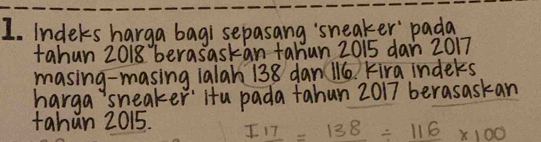 1. Indeks harga bagi sepasang 'sneaker' pada
tahun 2018 berasaskan tahun 2015 dan 2017
masing-masing ialah 138 dan 116. Kira indeks
harga 'sneaker' itu pada tahun 2017 berasaskan
tahun 2015.
I 17 = 138 ÷ 116 × 100